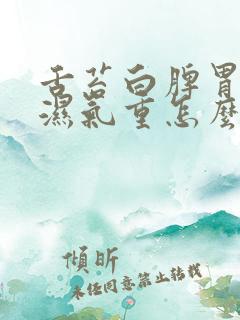 舌苔白脾胃
濕氣重怎麼
傾昕
未任同意禁止轉載